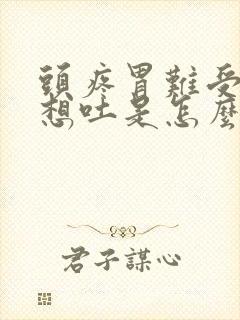 頭疼胃難受
想吐是怎麼
君子謀心